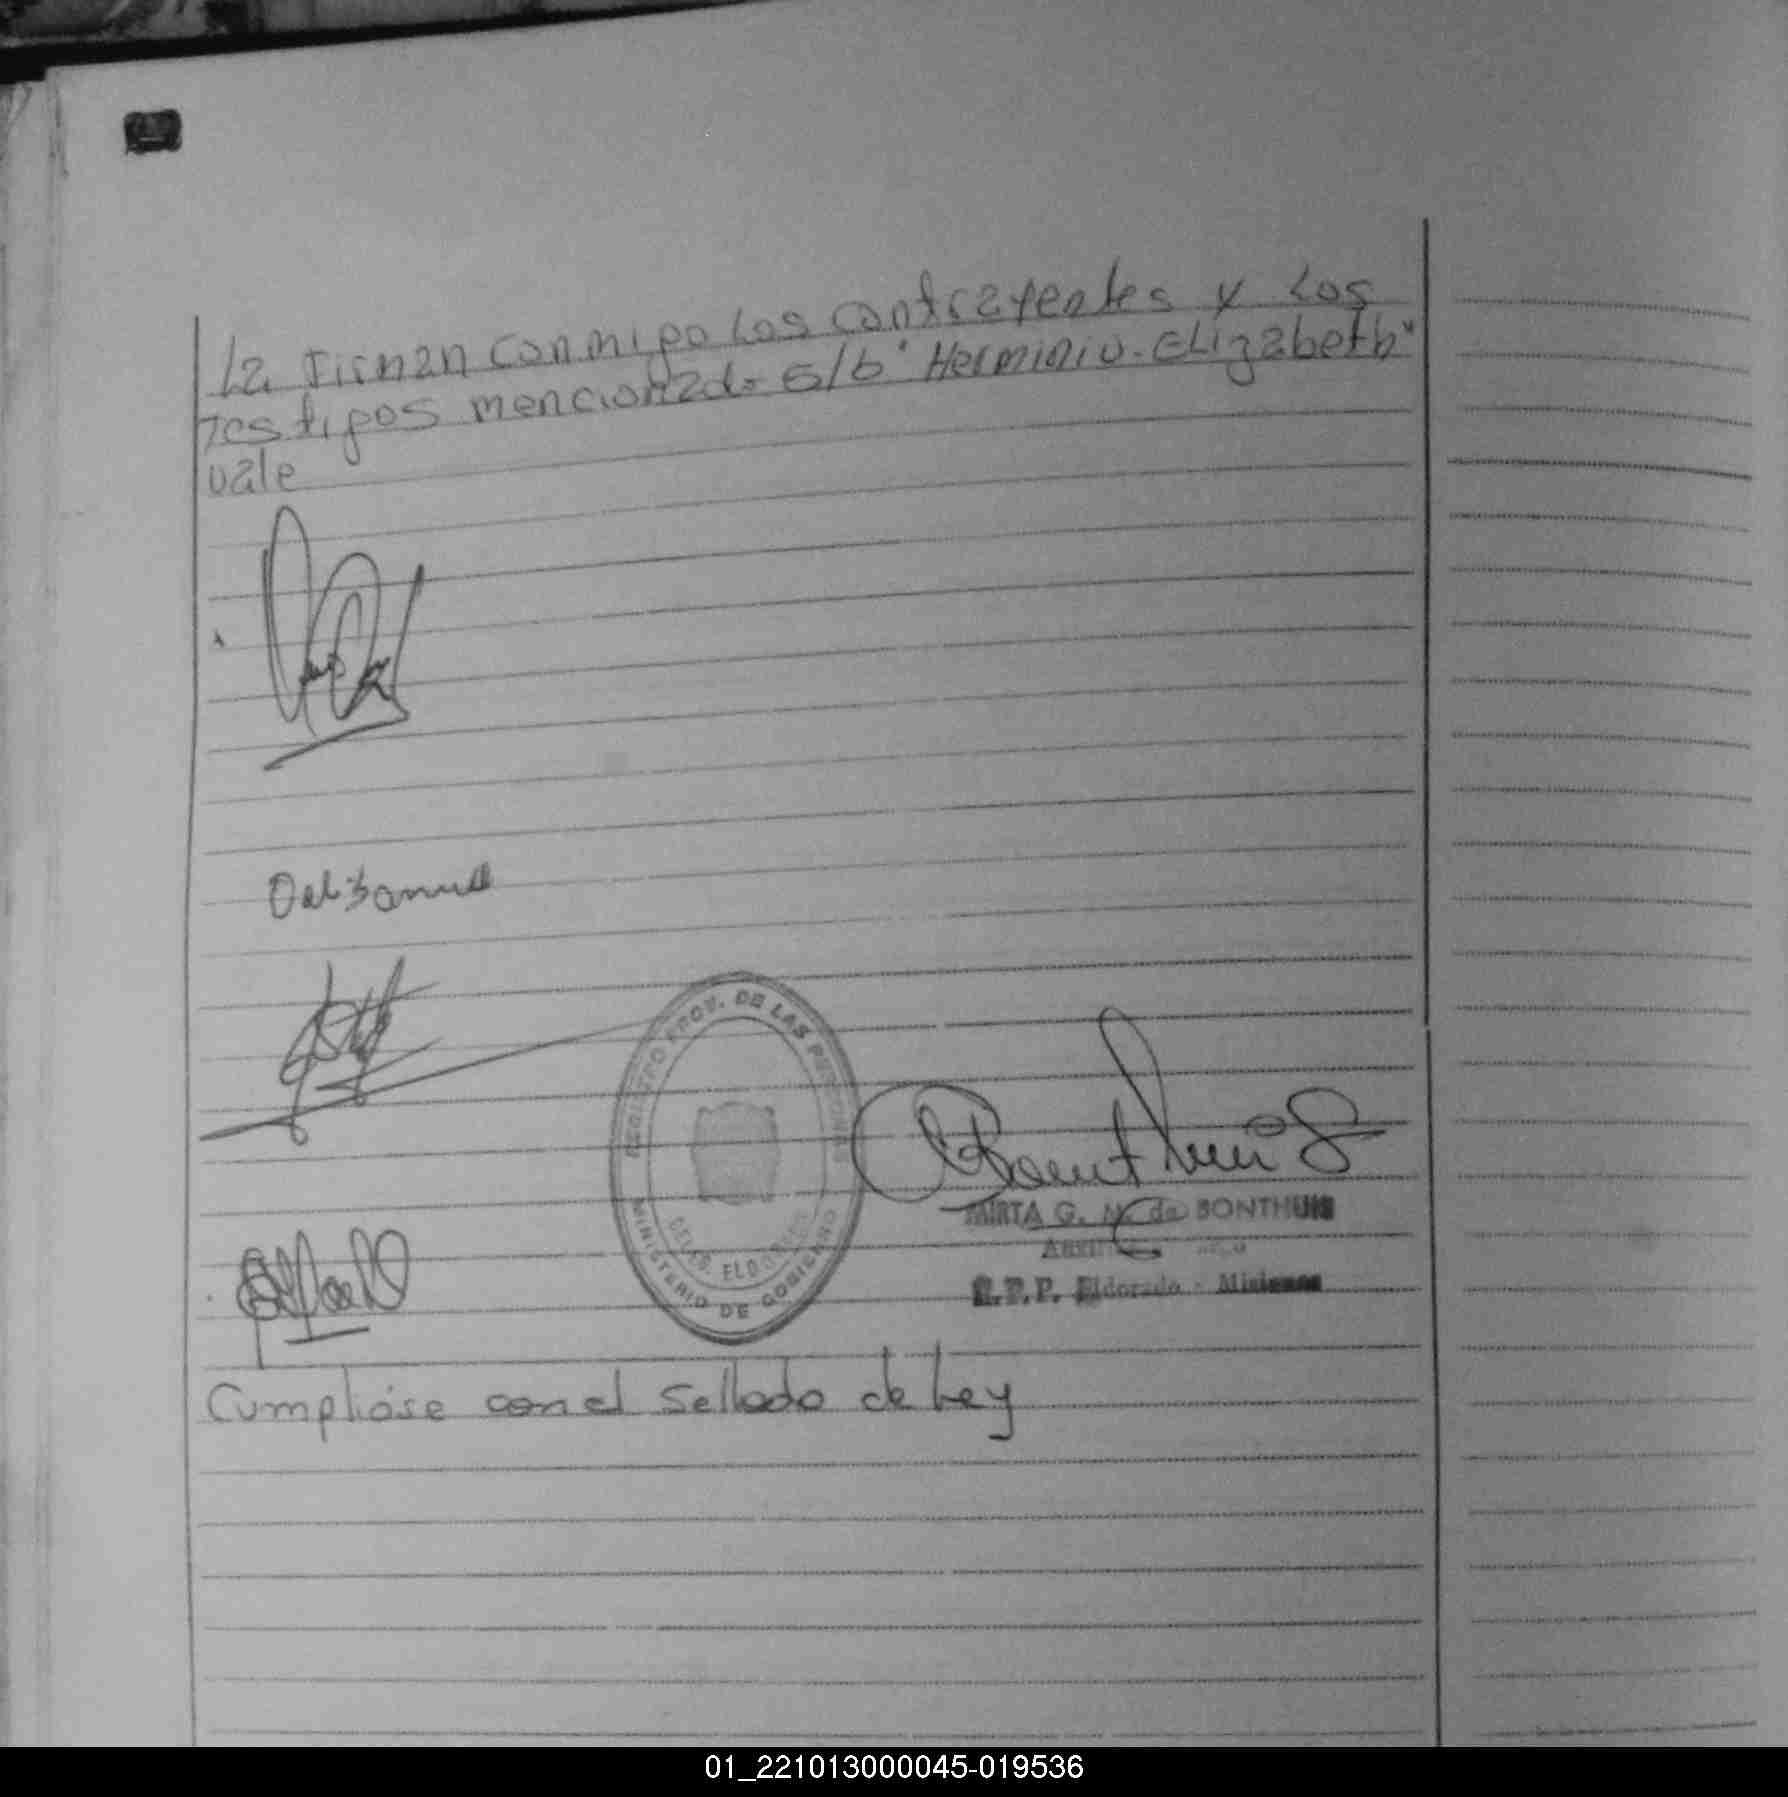 La Firman conmigo Los contrayentes y Los
Testigos mencionado s/b "Herminio. Elizabeth"
vale
REGISTRO PROV. DE LAS PERSONAS
DELEG. ELDORADO
MINISTERIO DE GOBIERNO
MIRTA G. N. de BONTHUIS
R.P.P. Eldorado - Misiones
Cumplióse con el Sellado de Ley
01_221013000045-019536